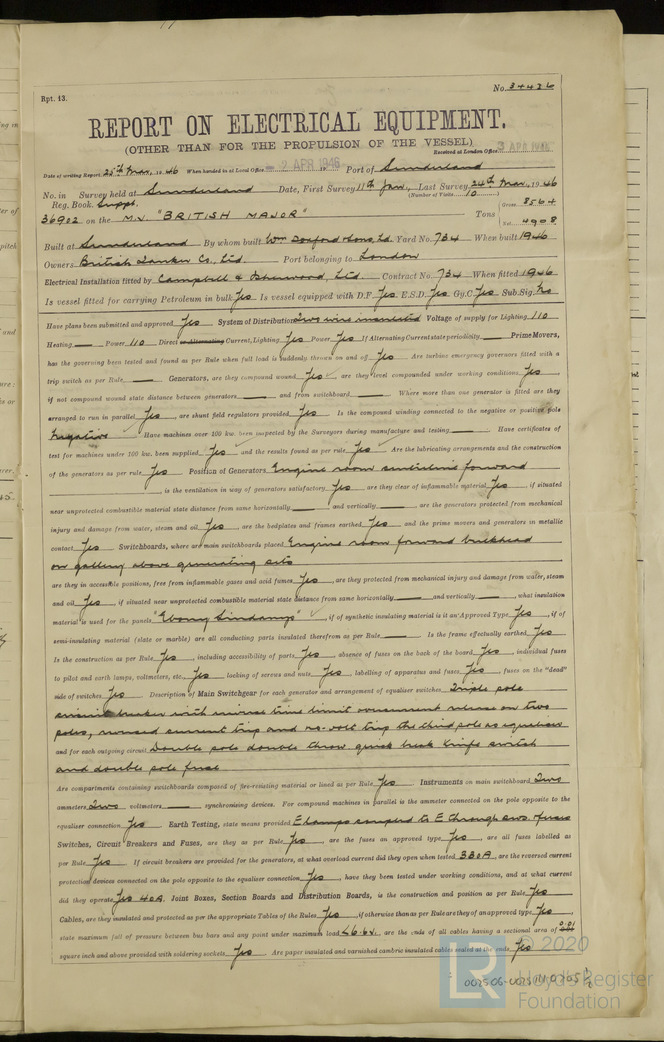 No. 34426
Rpt. 13.
REPORT ON ELECTRICAL EQUIPMENT.
(OTHER THAN FOR THE PROPULSION OF THE VESSEL)
Received at London Office 3 APR 1946
Date of writing Report 25th Mar, 1946 When handed in at Local Office 2 APR 1946 Port of Sunderland
No. in Survey held at Sunderland Date, First Survey 11th Jan., Last Survey 24th Mar., 1946
Reg. Book. Suppt. (Number of Visits 10)
36902 on the M.V. "BRITISH MAJOR" Tons Gross 8564 Net 4908
Built at Sunderland By whom built Wm Doxford & Sons, Ld. Yard No. 734 When built 1946
Owners British Tanker Co., Ltd. Port belonging to London
Electrical Installation fitted by Campbell & Isherwood, Ltd Contract No. 734 When fitted 1946
Is vessel fitted for carrying Petroleum in bulk Yes Is vessel equipped with D.F. Yes E.S.D. Yes Gy.C. Yes Sub.Sig. No
Have plans been submitted and approved Yes System of Distribution Two wire insulated Voltage of supply for Lighting 110
Heating — Power 110 Direct or Alternating Current, Lighting Yes Power Yes If Alternating Current state periodicity — Prime Movers,
has the governing been tested and found as per Rule when full load is suddenly thrown on and off Yes Are turbine emergency governors fitted with a
trip switch as per Rule — Generators, are they compound wound Yes, are they level compounded under working conditions Yes
if not compound wound state distance between generators — and from switchboard — Where more than one generator is fitted are they
arranged to run in parallel Yes, are shunt field regulators provided Yes Is the compound winding connected to the negative or positive pole
Negative Have machines over 100 kw. been inspected by the Surveyors during manufacture and testing — Have certificates of
test for machines under 100 kw. been supplied Yes and the results found as per rule Yes Are the lubricating arrangements and the construction
of the generators as per rule Yes Position of Generators Engine room forward
, is the ventilation in way of generators satisfactory Yes are they clear of inflammable material Yes, if situated
near unprotected combustible material state distance from same horizontally — and vertically —, are the generators protected from mechanical
injury and damage from water, steam and oil Yes, are the bedplates and frames earthed Yes and the prime movers and generators in metallic
contact Yes Switchboards, where are main switchboards placed Engine room forward bulkhead
on gallery above generating sets
are they in accessible positions, free from inflammable gases and acid fumes Yes, are they protected from mechanical injury and damage from water, steam
and oil Yes, if situated near unprotected combustible material state distance from same horizontally — and vertically —, what insulation
material is used for the panels "Ebony Sindanyo", if of synthetic insulating material is it an Approved Type Yes, if of
semi-insulating material (slate or marble) are all conducting parts insulated therefrom as per Rule — Is the frame effectually earthed Yes
Is the construction as per Rule Yes, including accessibility of parts Yes, absence of fuses on the back of the board Yes, individual fuses
to pilot and earth lamps, voltmeters, etc. Yes, locking of screws and nuts Yes, labelling of apparatus and fuses Yes, fuses on the "dead"
side of switches Yes Description of Main Switchgear for each generator and arrangement of equaliser switches Triple pole
circuit breaker with inverse time limit overcurrent release on two
poles, reversed current trip and no-volt trip the third pole as equaliser
and for each outgoing circuit Double pole double throw quick break knife switch
and double pole fuse
Are compartments containing switchboards composed of fire-resisting material or lined as per Rule Yes Instruments on main switchboard Two
ammeters Two voltmeters — synchronising devices. For compound machines in parallel is the ammeter connected on the pole opposite to the
equaliser connection Yes Earth Testing, state means provided E lamps coupled to E through two fuses
Switches, Circuit Breakers and Fuses, are they as per Rule Yes, are the fuses an approved type Yes, are all fuses labelled as
per Rule Yes If circuit breakers are provided for the generators, at what overload current did they open when tested 330A, are the reversed current
protection devices connected on the pole opposite to the equaliser connection Yes, have they been tested under working conditions, and at what current
did they operate Yes 40A. Joint Boxes, Section Boards and Distribution Boards, is the construction and position as per Rule Yes
Cables, are they insulated and protected as per the appropriate Tables of the Rules Yes, if otherwise than as per Rule are they of an approved type Yes,
state maximum fall of pressure between bus bars and any point under maximum load, are the ends of all cables having a sectional area of
square inch and above provided with soldering sockets Yes Are paper insulated and varnished cambric insulated cables sealed at the ends Yes
© 2020
LR
Lloyd's Register
Foundation